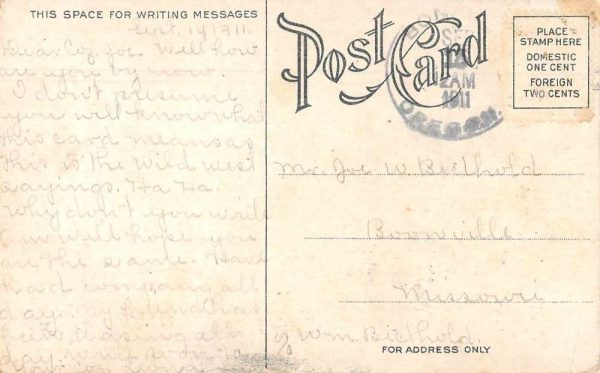 THIS SPACE FOR WRITING MESSAGES
Sept. 19 1911.
Dear Coz Joe. Well how
are you by now
I don't presume
you will know what
this card means as
this is the wild west
sayings. Ha Ha.
Why don't you write
I am well hope you
are the same. Have
had company all
day. my friend has
been teasing all
day. write soon to
Your coz
POST CARD
SEP
2 AM
1911
OREGON
PLACE
STAMP HERE
DOMESTIC
ONE CENT
FOREIGN
TWO CENTS
Mr. Joe W. Biethold
Boonville
Missouri
% Wm. Biethold
FOR ADDRESS ONLY